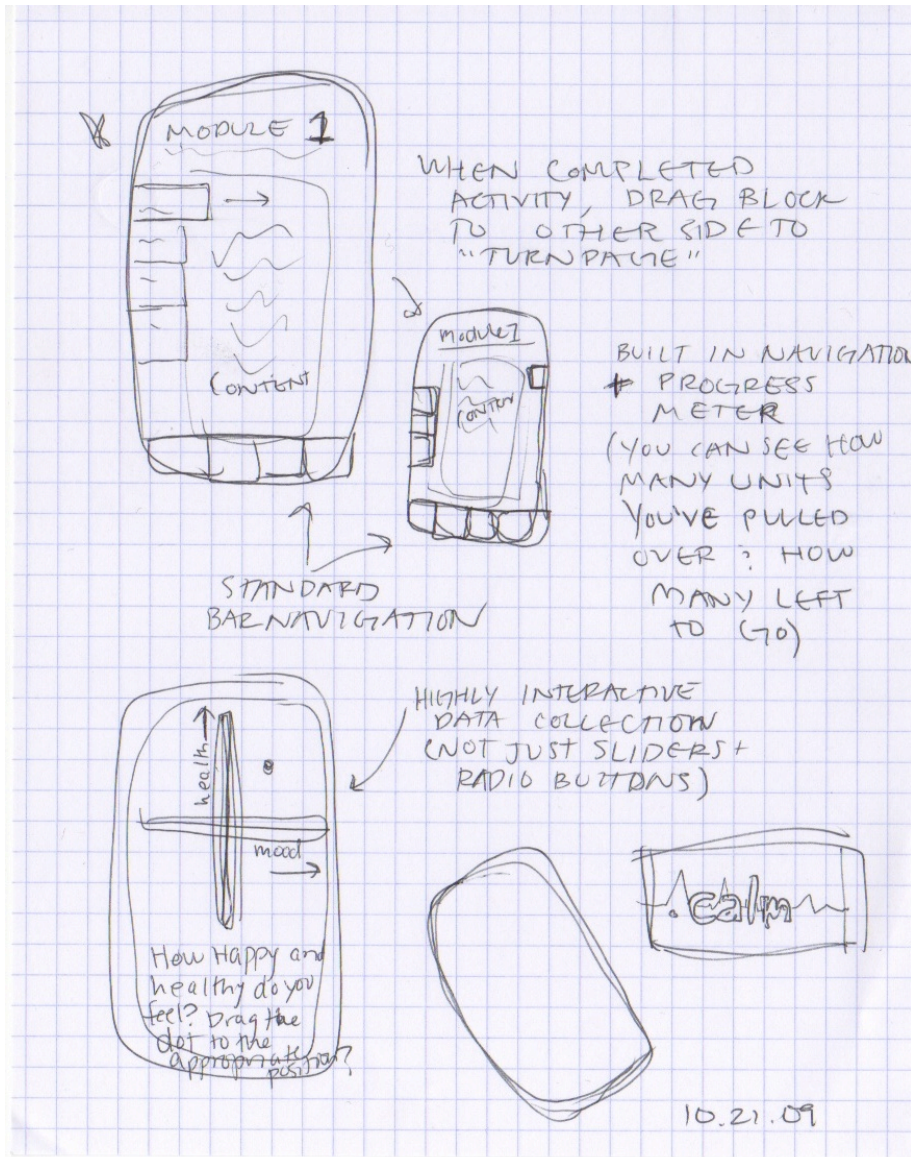 MODULE 1
CONTENT
WHEN COMPLETED
ACTIVITY, DRAG BLOCK
TO OTHER SIDE TO
"TURN PAGE"
module 1
CONTEN
BUILT IN NAVIGATION
+ PROGRESS
METER
(YOU CAN SEE HOW
MANY UNITS
YOU'VE PULLED
OVER & HOW
MANY LEFT
TO GO)
STANDARD
BAR NAVIGATION
HIGHLY INTERACTIVE
DATA COLLECTION
(NOT JUST SLIDERS +
RADIO BUTTONS)
health
mood
How Happy and
healthy do you
feel? Drag the
dot to the
appropriate
position?
.calm
10.21.09